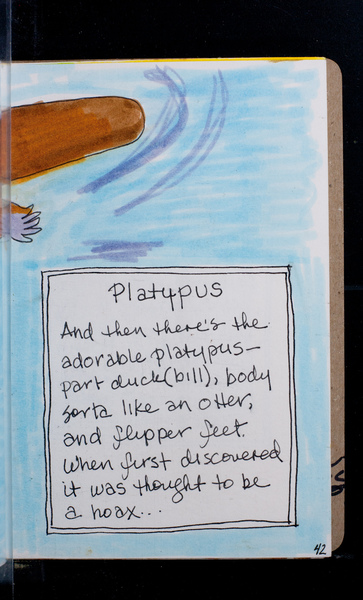 Platypus
And then there's the
adorable platypus-
part duck(bill), body
sorta like an otter,
and flipper feet.
When first discovered
it was thought to be
a hoax...
42